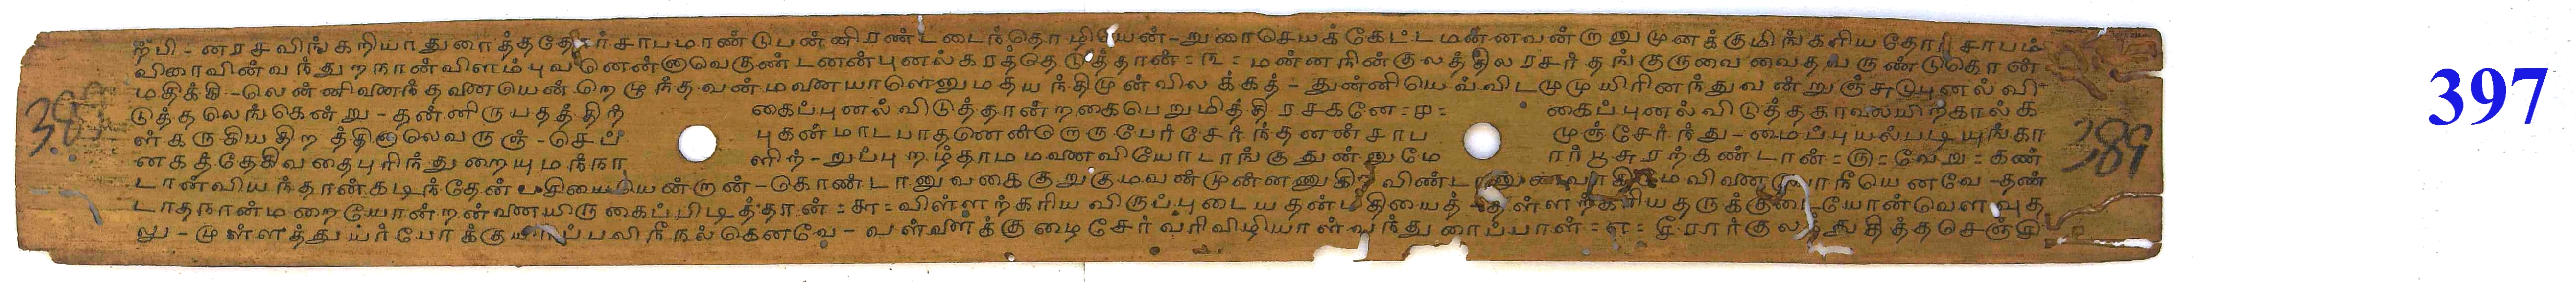 ற்பி - னரசவிங்கறியாதுரைத்ததோர்சாபமாண்டுபன்னிரண்டடைந்தொழியென் - றுரைசெயக்கேட்டமன்னவன்றனுமுனக்குமிங்களியதோர்சாபம்
விரைவின்வந்துறநான்விளம்புவனென்னாவெகுண்டனன்புனல்கரத்தெடுத்தான் = ௩ = மன்னநின்குலத்திலரசர்தங்குருவைவைதவருண்டுகொன்
மதிக்கி - லென்னிவணைந்தவணையென்றெழுந்தவன்மனையாளெனுமதயந்திமுன்விலக்கத் - துன்னியெவ்விடமுமுயிரினந்துவன்றுஞ்சுடுபுனல்வி
டுத்தலெங்கென்று - தன்னிருபதத்திற் கைப்புனல்விடுத்தான்றகைபெறுமித்திரசகனே = ௪ = கைப்புனல்விடுத்தகாலையிற்கால்க
ள்கருகியதிறத்தினாலெவருஞ் - செப் புகன்மாடபாதனென்றொருபேர்சேர்ந்தனன்சாப முஞ்சேர்ந்து - மைப்புயல்படியுங்கா
னகத்தேகிவதைபுரிந்துறையுமந்நா ளிற் - றுப்புறழ்தாமமனைவியோடாங்குதுன்னுமோ ர்பூசுரற்கண்டான் = ௫ = வேறு = கண்
டான்வியந்தான்கடிந்தேன் பசியையென்றான் - கொண்டானுவகைகுறுகுமவன்முன்னணுகி விண்டா நீயெனவே - தண்
டாதநான்மறையோன்றன்னையிருகைப்பிடித்தான் = ௬ = விள்ளற்கரியவிருப்புடையதன்பதியைத் - தள்ளற்கரியதருக்குடையோன்வௌவுத
லு - முள்ளத்துயர்போர்க்குயிர்ப்பலிநீநல்கெனவே - வள்ளைக்குழைசேர்வரிவிழியாள்வந்துரைப்பாள் = ௭ = சீரார்குலத்துதித்தசெஞ்சி
389
397